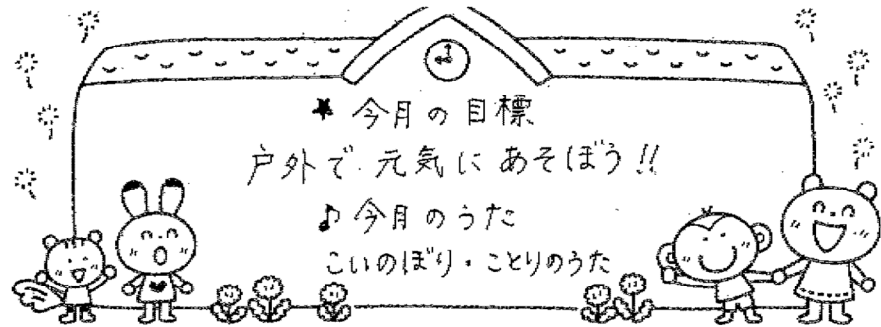 ★ 今月の目標
戸外で 元気に あそぼう!!
♪ 今月のうた
こいのぼり・ことりのうた